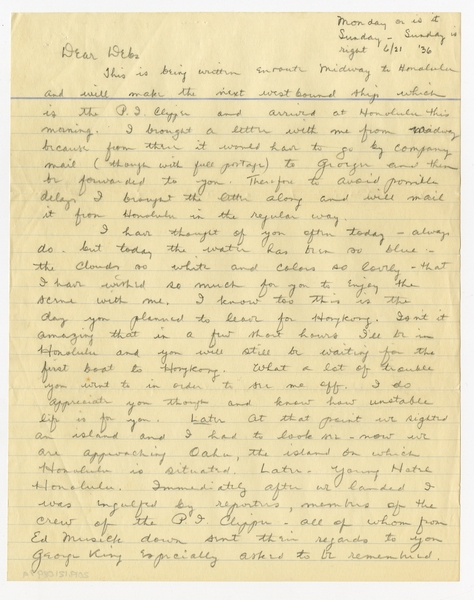 Monday or is it
Sunday - Sunday is
right 6/21 '36
Dear Debs
This is being written enroute Midway to Honolulu
and will make the next west bound ship which
is the P.I. Clipper and arrived at Honolulu this
morning. I brought a letter with me from Midway
because from there it would have to go by company
mail (though with full postage) to George and then
be forwarded to you. Therefore to avoid possible
delays I brought the letter along and will mail
it from Honolulu in the regular way.
I have thought of you often today - always
do - but today the water has been so blue -
the clouds so white and colors so lovely - that
I have wished so much for you to enjoy the
scene with me. I know too this is the
day you planned to leave for Hongkong. Isn't it
amazing that in a few short hours I'll be in
Honolulu and you will still be waiting for the
first boat to Hongkong. What a lot of trouble
you went to in order to see me off. I do
appreciate you though and know how unstable
life is for you. Later At that point we sighted
an island and I had to look see - now we
are approaching Oahu, the island on which
Honolulu is situated. Later - Young Hotel
Honolulu. Immediately after we landed I
was engulfed by reporters, members of the
crew of the P.I. Clipper - all of whom from
Ed Musick down sent their regards to you
George King Especially asked to be remembered.